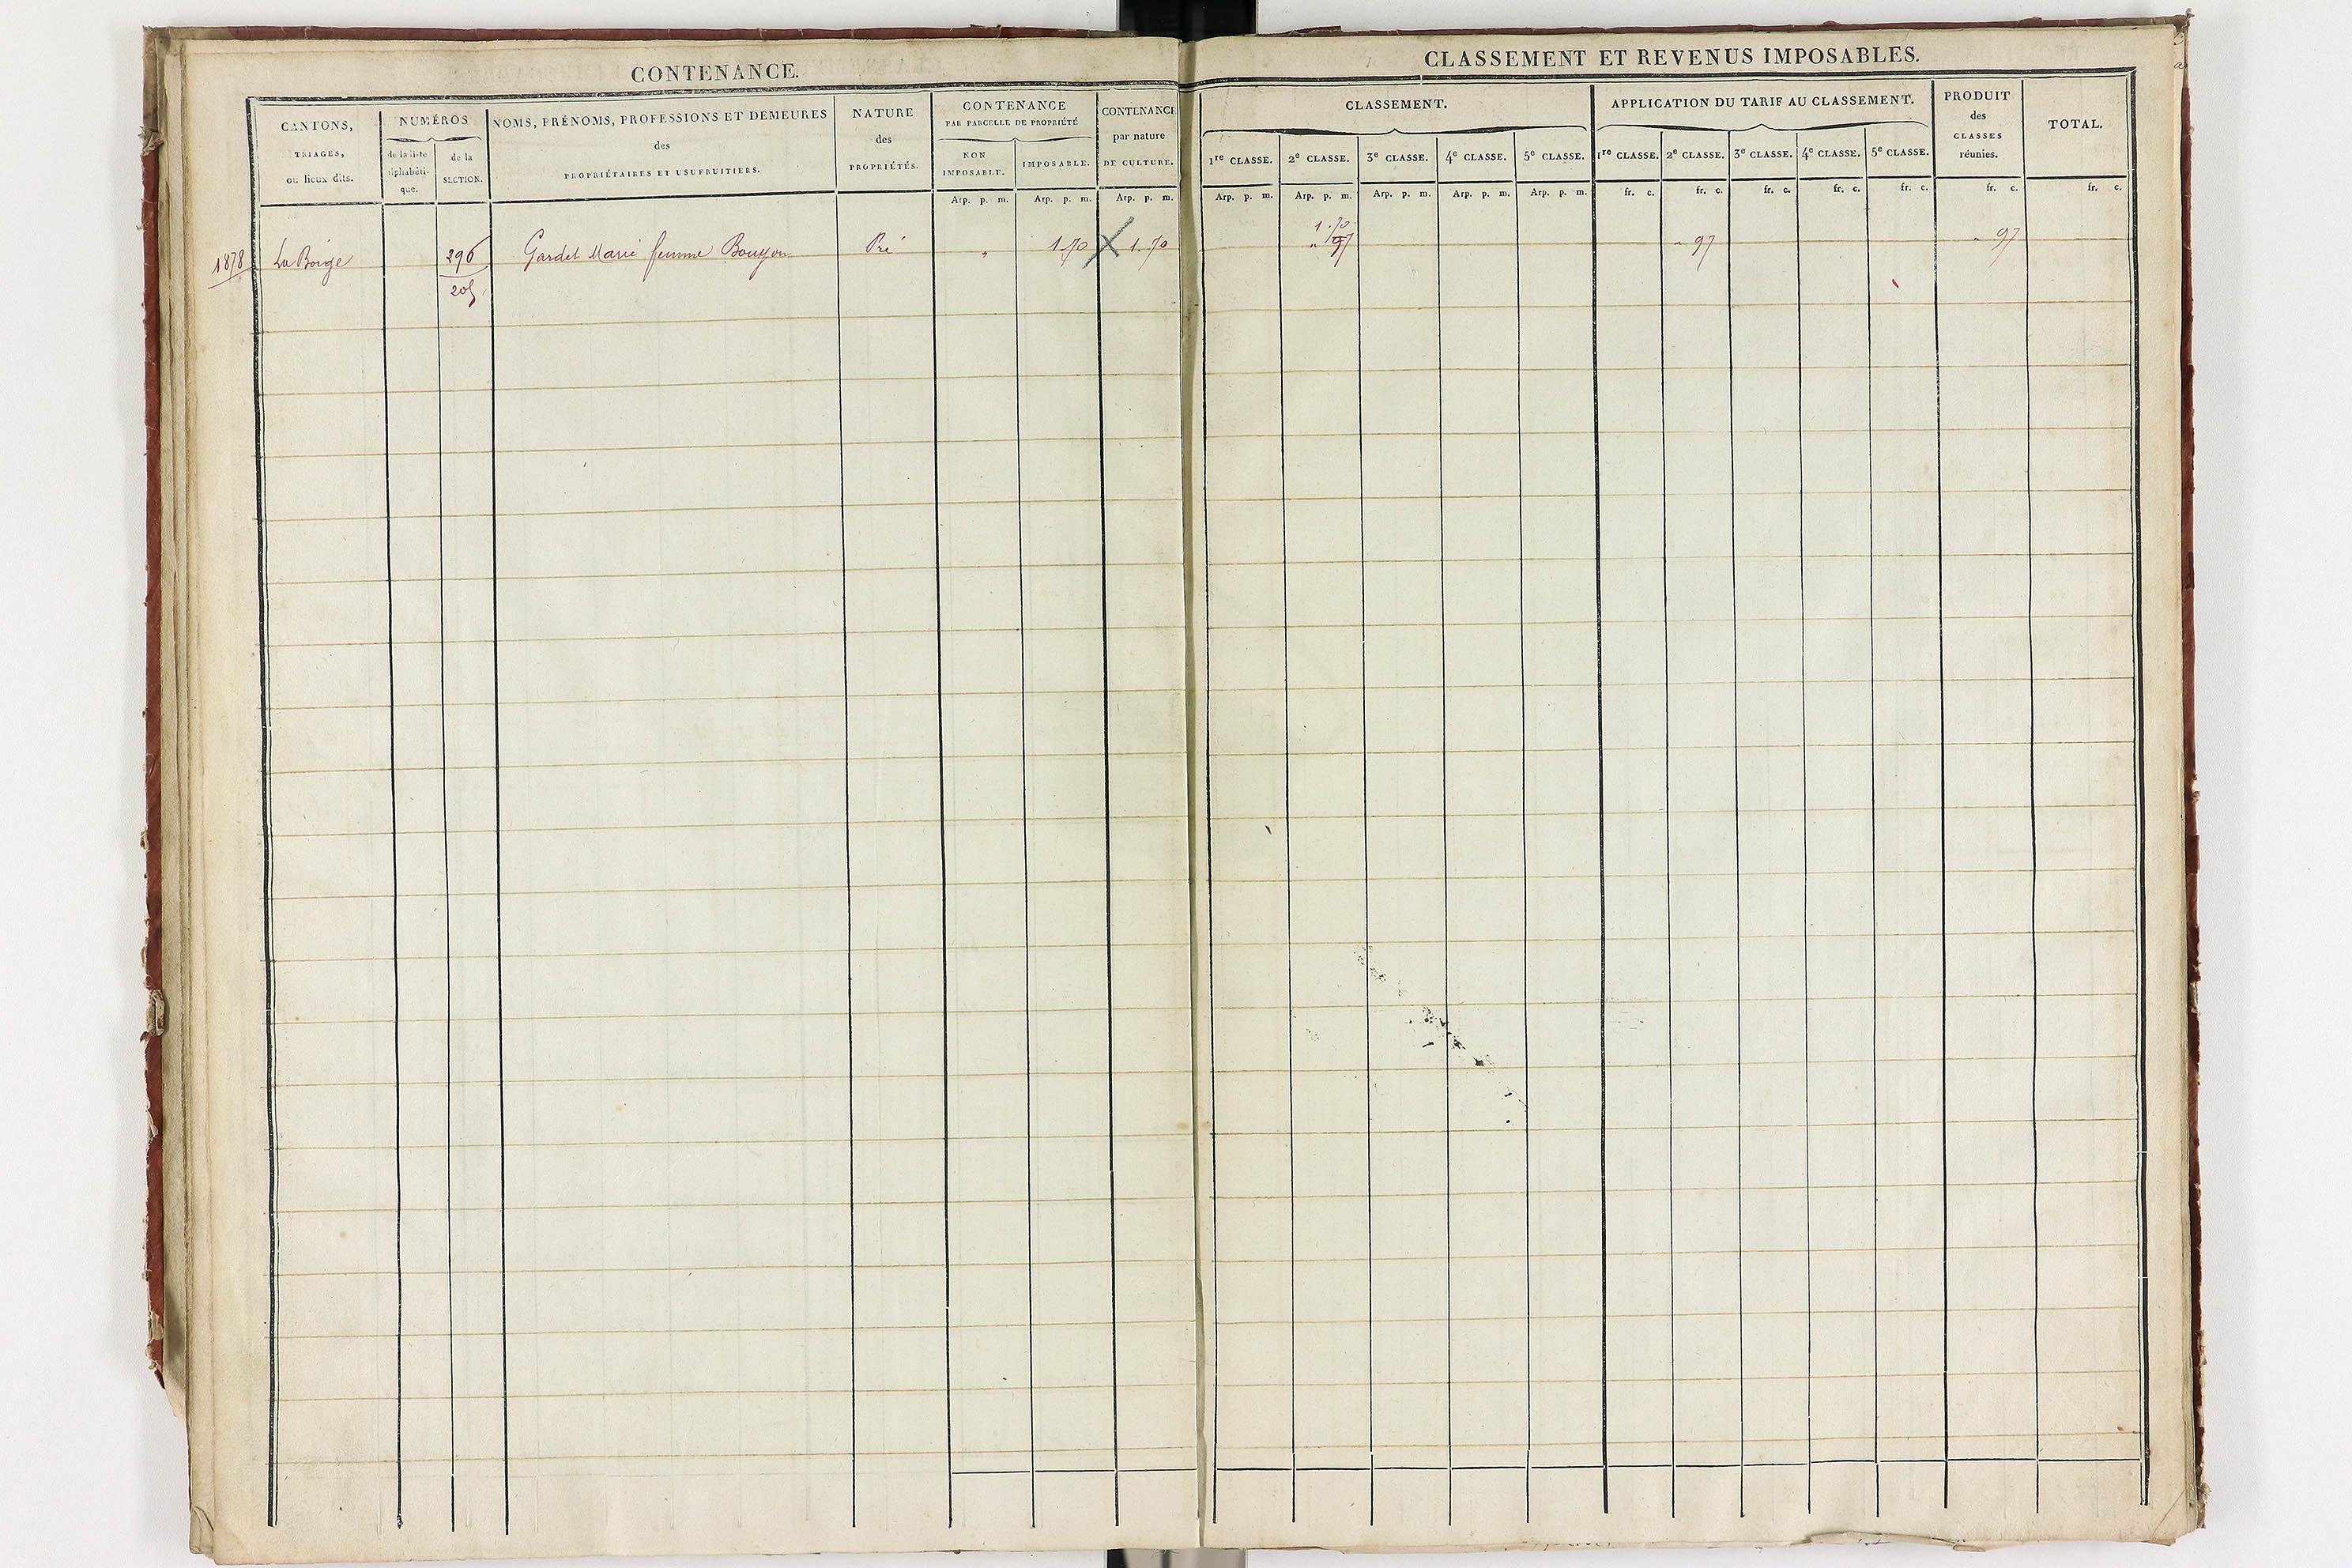 CONTENANCE.
CANTONS,
TRIAGES,
ou lieux dits.
NUMÉROS
de la liste
alphabéti-
que.
de la
SECTION.
NOMS, PRÉNOMS, PROFESSIONS ET DEMEURES
des
PROPRIÉTAIRES ET USUFRUITIERS.
NATURE
des
PROPRIÉTÉS.
CONTENANCE
PAR PARCELLE DE PROPRIÉTÉ
NON
IMPOSABLE.
IMPOSABLE.
CONTENANCE
par nature
DE CULTURE.
Arp. p. m. Arp. p. m. Arp. p. m.
1878 La Boige 296 Gardet Marie femme Pré " 1.70 X 1.70
205
CLASSEMENT ET REVENUS IMPOSABLES.
CLASSEMENT.
1re CLASSE. 2e CLASSE. 3e CLASSE. 4e CLASSE. 5e CLASSE.
Arp. p. m. Arp. p. m. Arp. p. m. Arp. p. m. Arp. p. m.
APPLICATION DU TARIF AU CLASSEMENT.
1re CLASSE. 2e CLASSE. 3e CLASSE. 4e CLASSE. 5e CLASSE.
fr. c. fr. c. fr. c. fr. c. fr. c.
PRODUIT
des
CLASSES
réunies.
fr. c.
TOTAL.
fr. c.
1.70
" 97 " 97 " 97